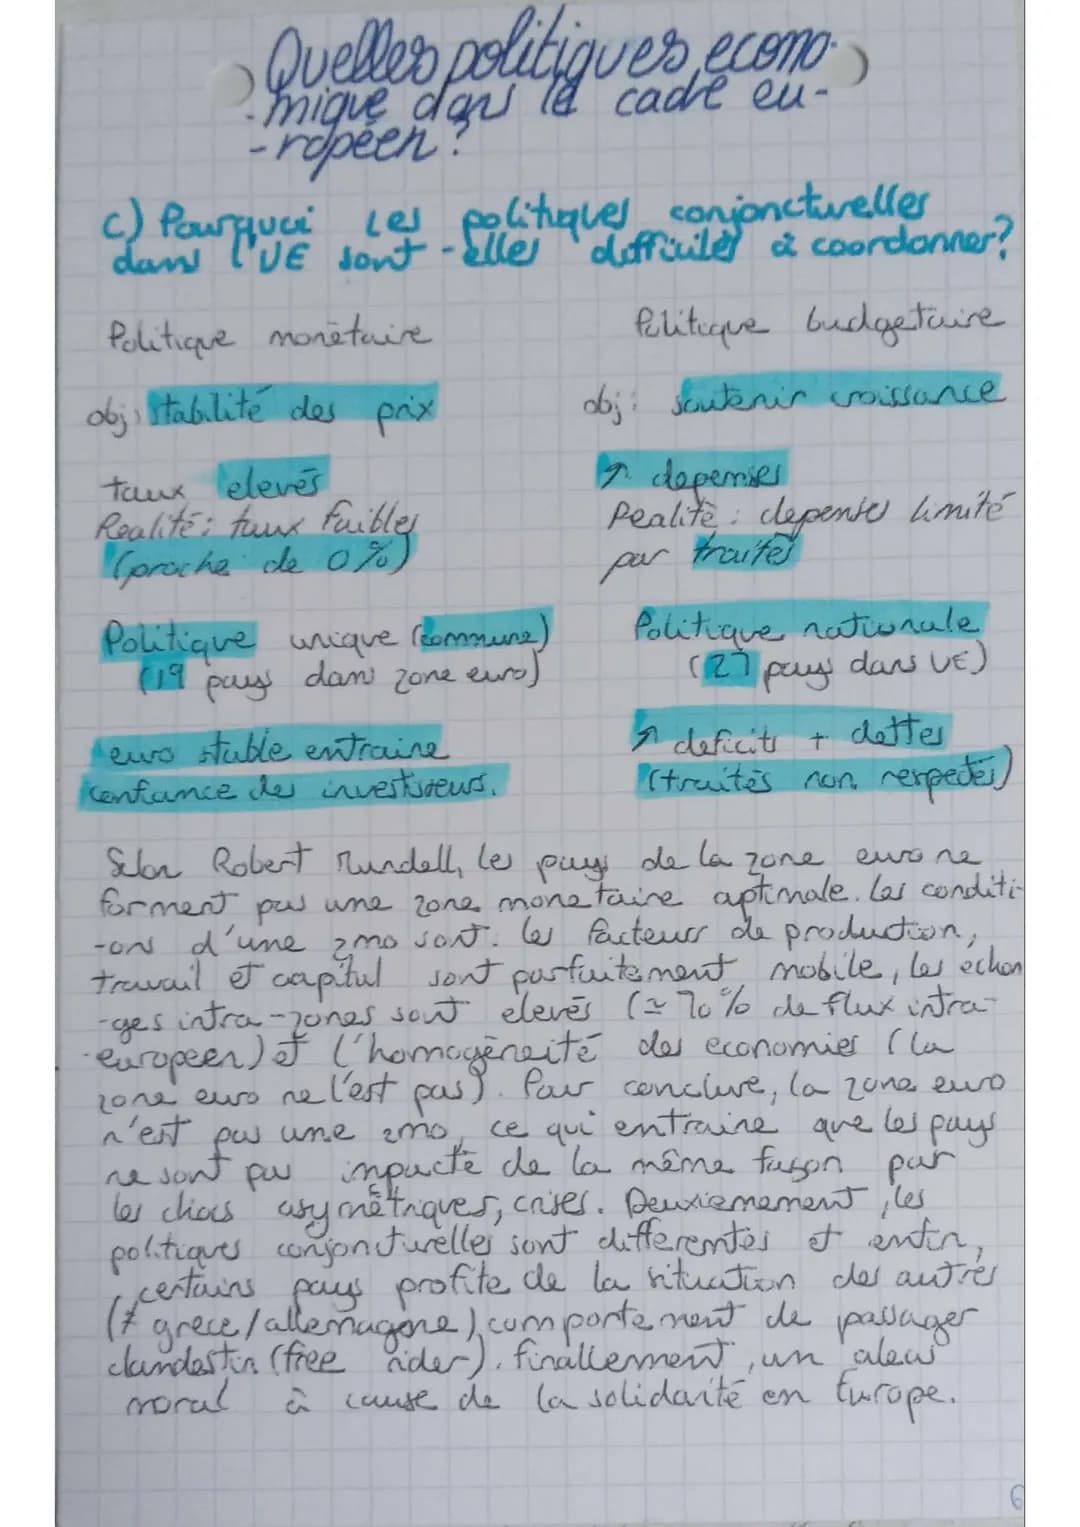 Quelles politiques écono-
-mique dans le cadre eu-
-ropéen ?
c) Pourquoi les politiques conjoncturelles
dans l'UE sont-elles difficiles à coordonner?
Politique monétaire
Politique budgetaire
obj: stabilité des prix
obj: soutenir croissance
taux elevés
↗ depenses
Realité: taux faibles
(proche de 0%)
Realité: depenses limité
par traités
Politique unique (commune)
(19 pays dans zone euro)
Politique nationale
(27 pays dans UE)
euro stable entraine
confiance des investisseurs.
↗ deficits + dettes
(traités non respectés)
Selon Robert Mundell, les pays de la zone euro ne
forment pas une zone monetaire optimale. Les conditi-
-ons d'une zmo sont: les facteurs de production,
travail et capital sont parfaitement mobile, les echan
-ges intra-zones sont elevés (≃ 70% de flux intra-
-européen) et l'homogénéité des economies (la
zone euro ne l'est pas). Pour conclure, la zone euro
n'est pas une zmo, ce qui entraine que les pays
ne sont pas impacté de la même façon par
les chocs asymétriques, crises. Deuxiemement, les
politiques conjoncturelles sont differentes et enfin,
certains pays profite de la situation des autres
(≠ grece/allemagne), comportement de passager
clandestin (free rider). finallement, un aleas
moral à cause de la solidarité en Europe.
6